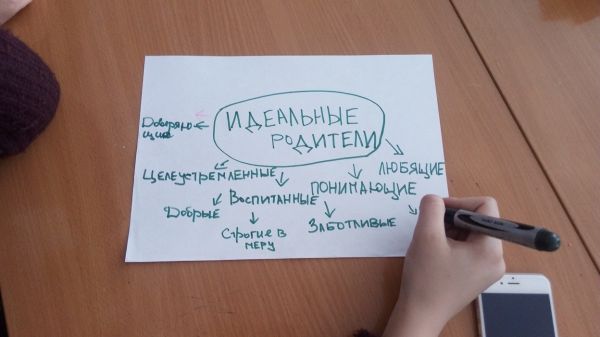 ИДЕАЛЬНЫЕ
РОДИТЕЛИ
Доверяю
щие
ЦЕЛЕУСТРЕМЛЕННЫЕ
ЛЮБЯЩИЕ
ПОНИМАЮЩИЕ
Воспитанные
Добрые
Заботливые
Строгие в
меру